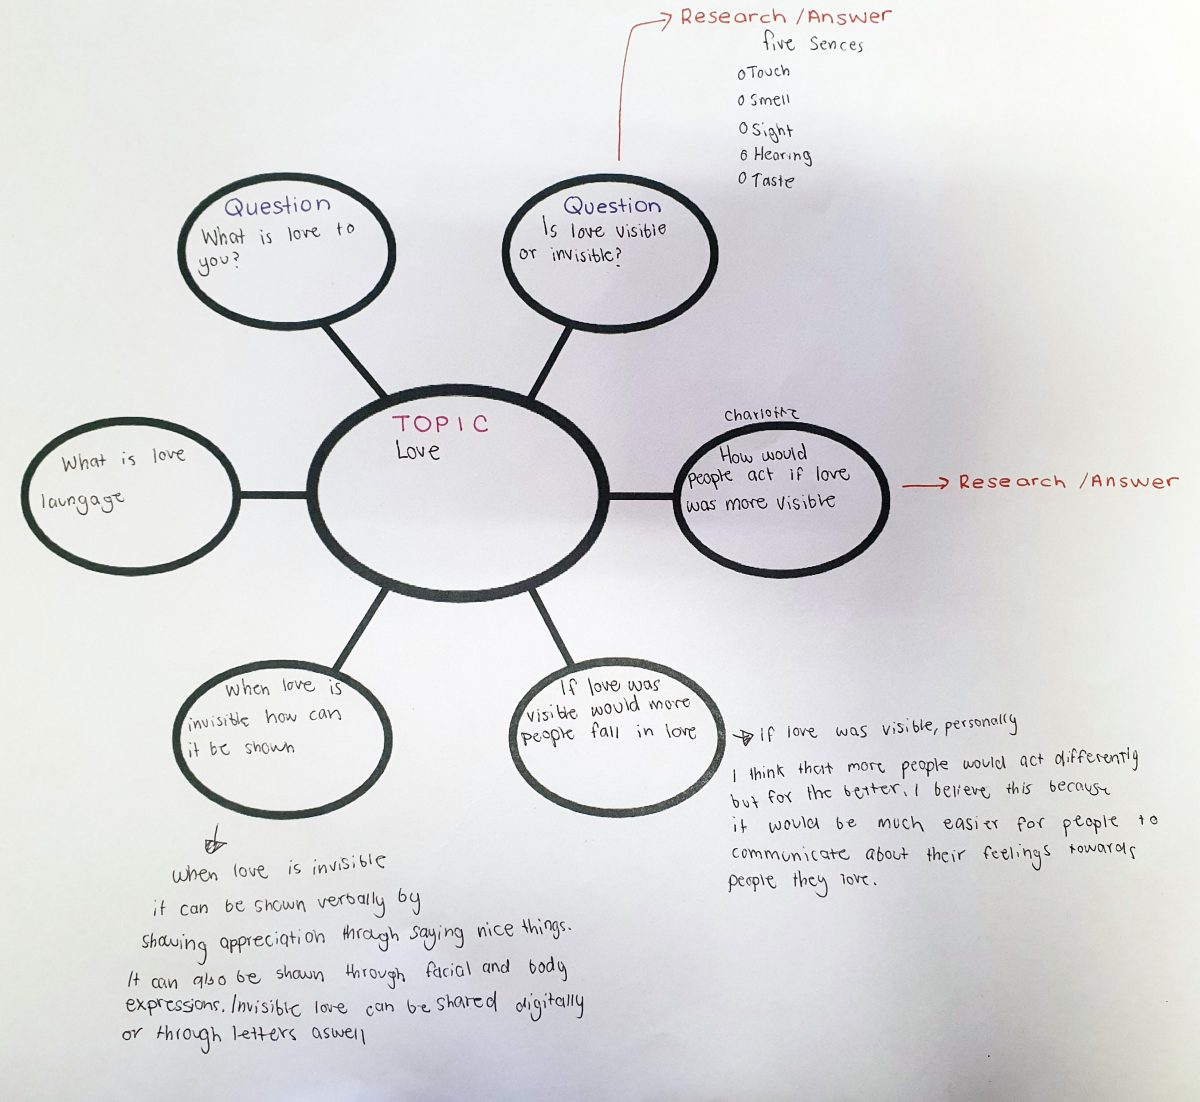 Research /Answer
five Sences
o Touch
o Smell
o Sight
o Hearing
o Taste
Question
What is love to
you?
Question
Is love visible
or invisible?
TOPIC
Love
What is love
laungage
Charlotte
How would
people act if love
was more visible
Research /Answer
When love is
invisible how can
it be shown
If love was
visible would more
people fall in love
if love was visible, personally
I think that more people would act differently
but for the better. I believe this because
it would be much easier for people to
communicate about their feelings towards
people they love.
when love is invisible
it can be shown verbally by
showing appreciation through saying nice things.
It can also be shown through facial and body
expressions. Invisible love can be shared digitally
or through letters aswell